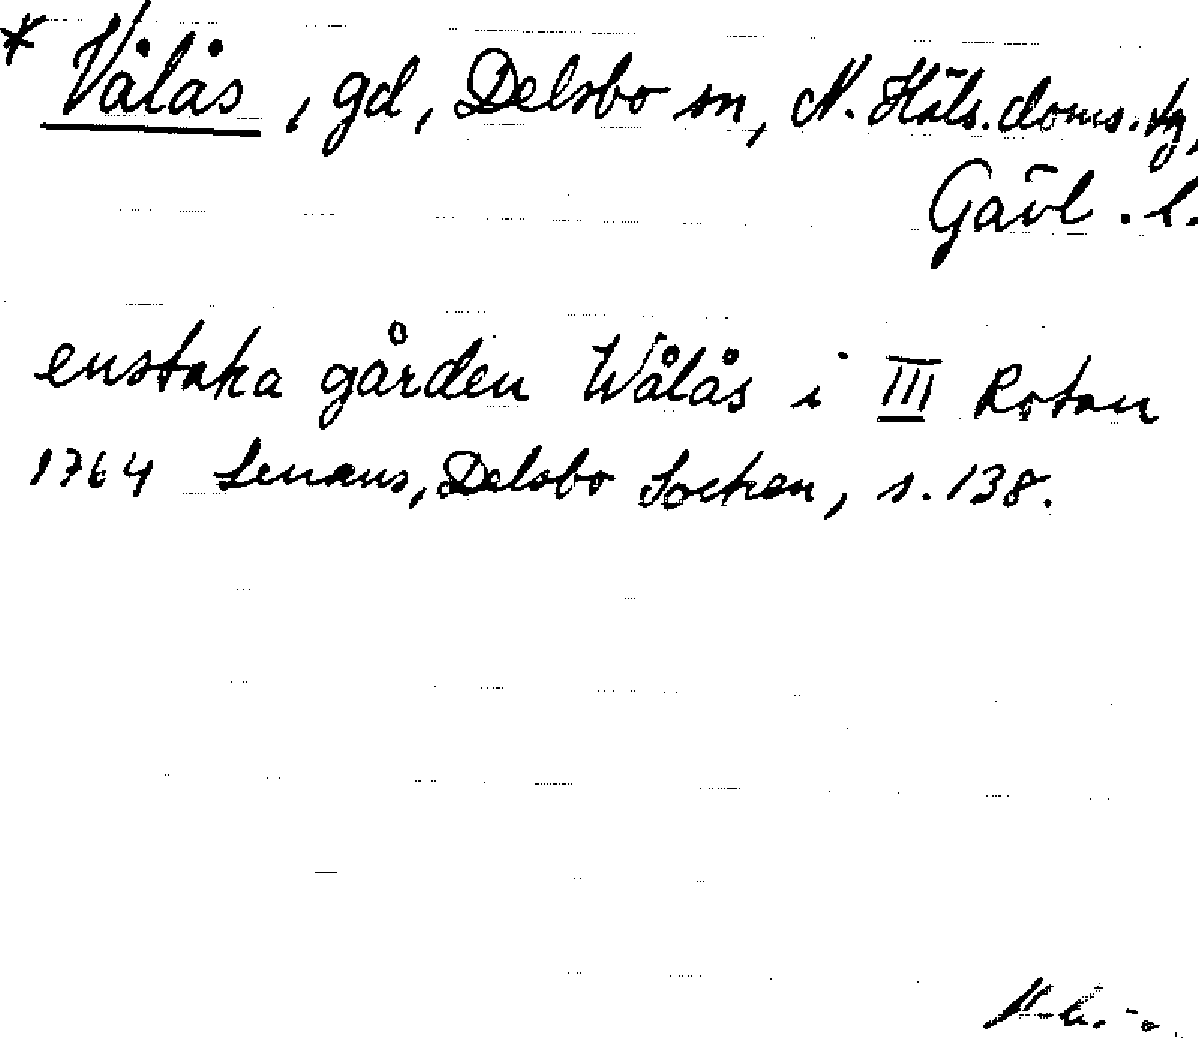 * Vålås, gd, Delsbo sn, N. Häls. doms. tg,
Gävl. l.
enstaka gården Wålås i III Rotan
1764 Lenæus, Delsbo Socken, s. 138.